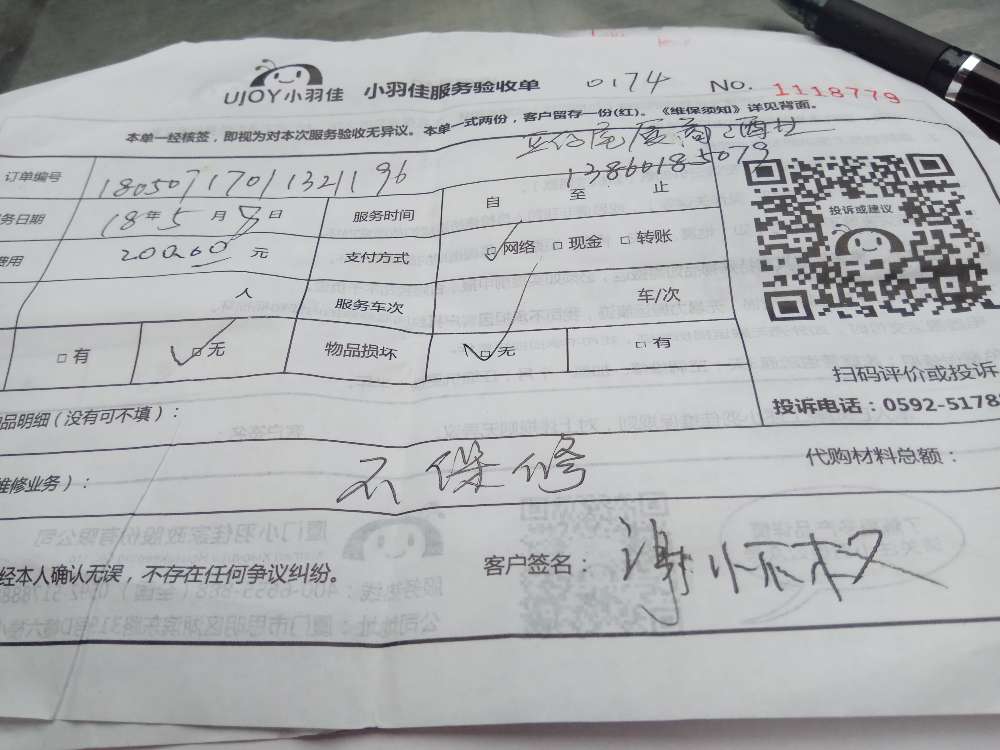 UJOY小羽佳 小羽佳服务验收单 0174 No. 1118779
本单一经核签，即视为对本次服务验收无异议。本单一式两份，客户留存一份(红)。《维保须知》详见背面。
13860185079
订单编号 180507170113211 96
务日期 18 年 5 月 日 服务时间 自 至 止
费用 元 支付方式 □网络 □现金 □转账
投诉或建议
人 服务车次 车/次
□有 □无 物品损坏 □无 □有
扫码评价或投诉
投诉电话：0592-5178
品明细（没有可不填）：
维修业务）： 不保修 代购材料总额：
经本人确认无误，不存在任何争议纠纷。 客户签名： 谢怀权